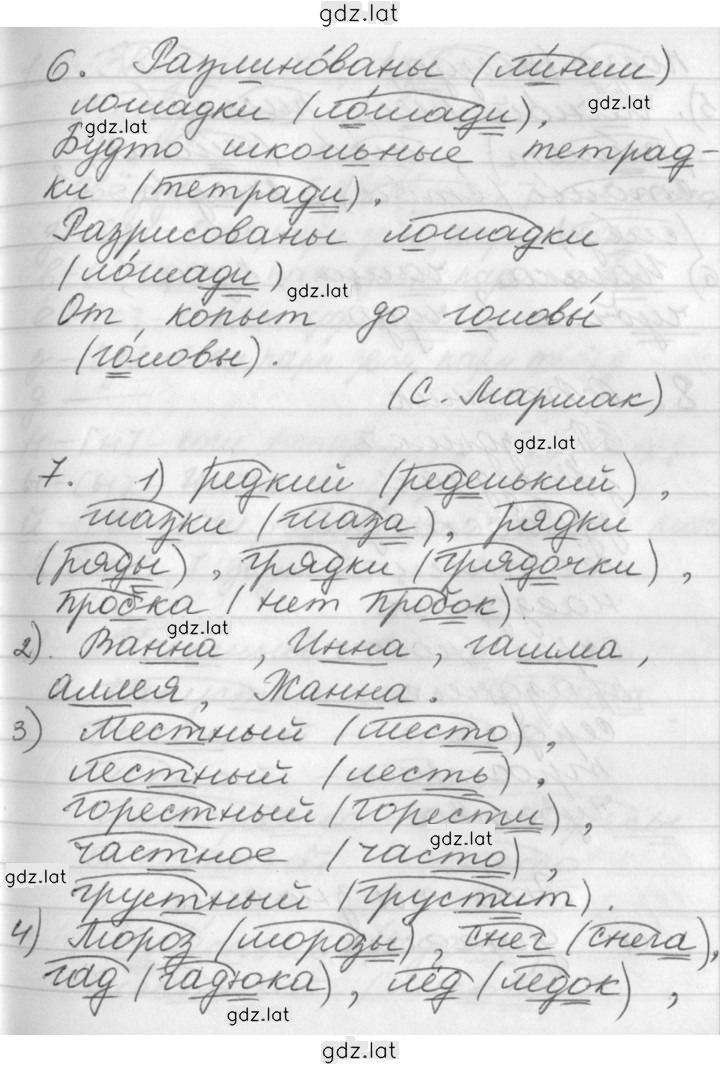 gdz.lat
6. Разлинованы (линии)
лошадки (лошади),
gdz.lat
gdz.lat
Будто школьные тетрад-
ки (тетради).
Разрисованы лошадки
(лошади)
gdz.lat
От копыт до головы
(головы).
(С. Маршак)
gdz.lat
7. 1) редкий (реденький),
глазки (глаза), рядки
(ряды), грядки (грядочки),
пробка (нет пробок).
gdz.lat
2). Ванна, Инна, гамма,
аллея, Жанна.
3) Местный (место),
лестный (лесть),
горестный (горести),
gdz.lat
частное (часто),
gdz.lat
грустный (грустит).
4) Мороз (морозы), снег (снега),
гад (гадюка), лёд (ледок),
gdz.lat
gdz.lat